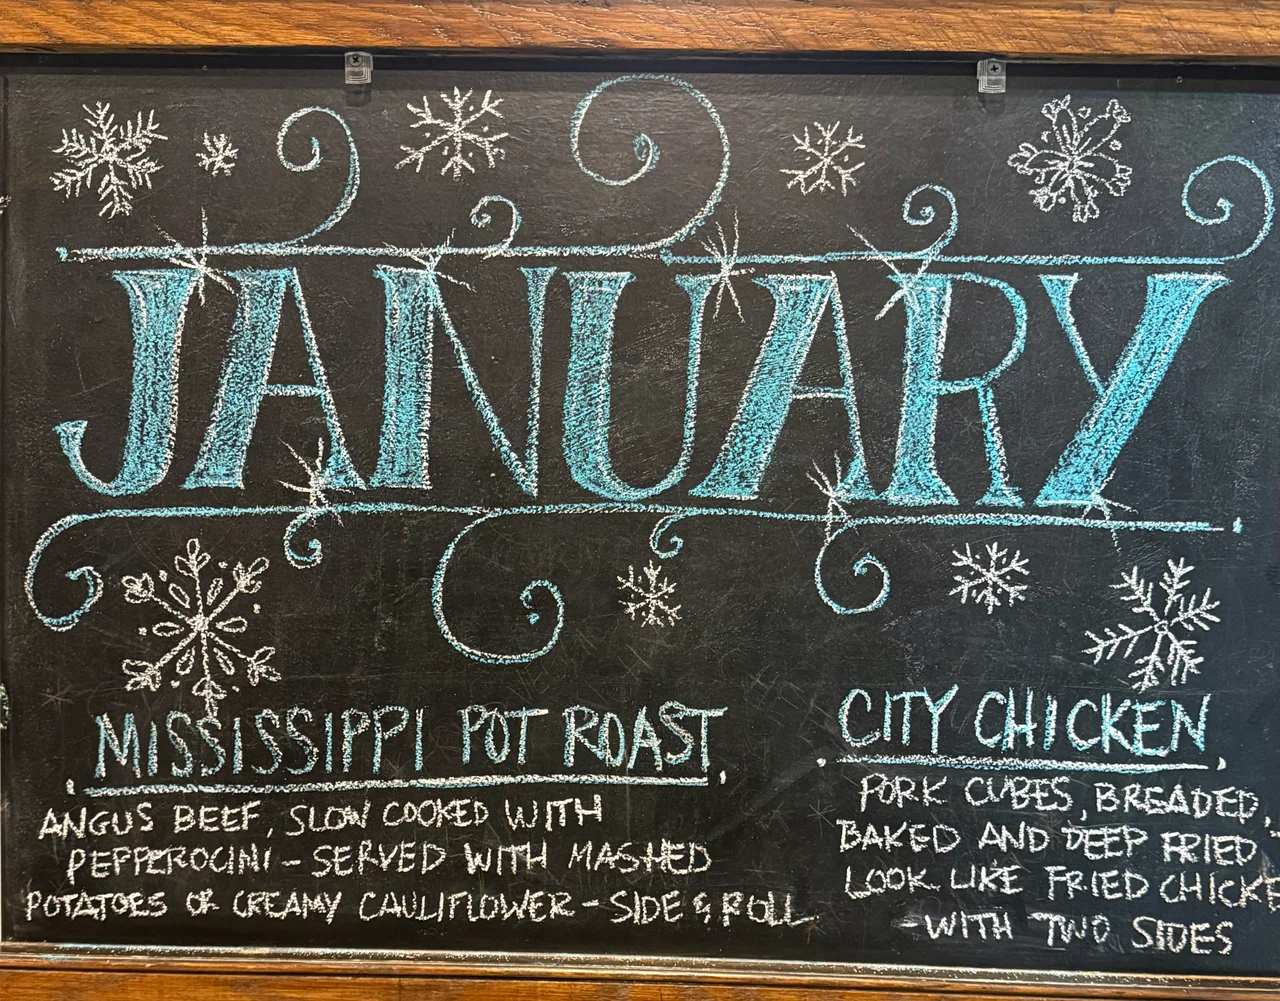 JANUARY
MISSISSIPPI POT ROAST
ANGUS BEEF, SLOW COOKED WITH
PEPPEROCINI - SERVED WITH MASHED
POTATOES OR CREAMY CAULIFLOWER - SIDE & ROLL
CITY CHICKEN
PORK CUBES, BREADED,
BAKED AND DEEP FRIED
LOOK LIKE FRIED CHICKE
-WITH TWO SIDES